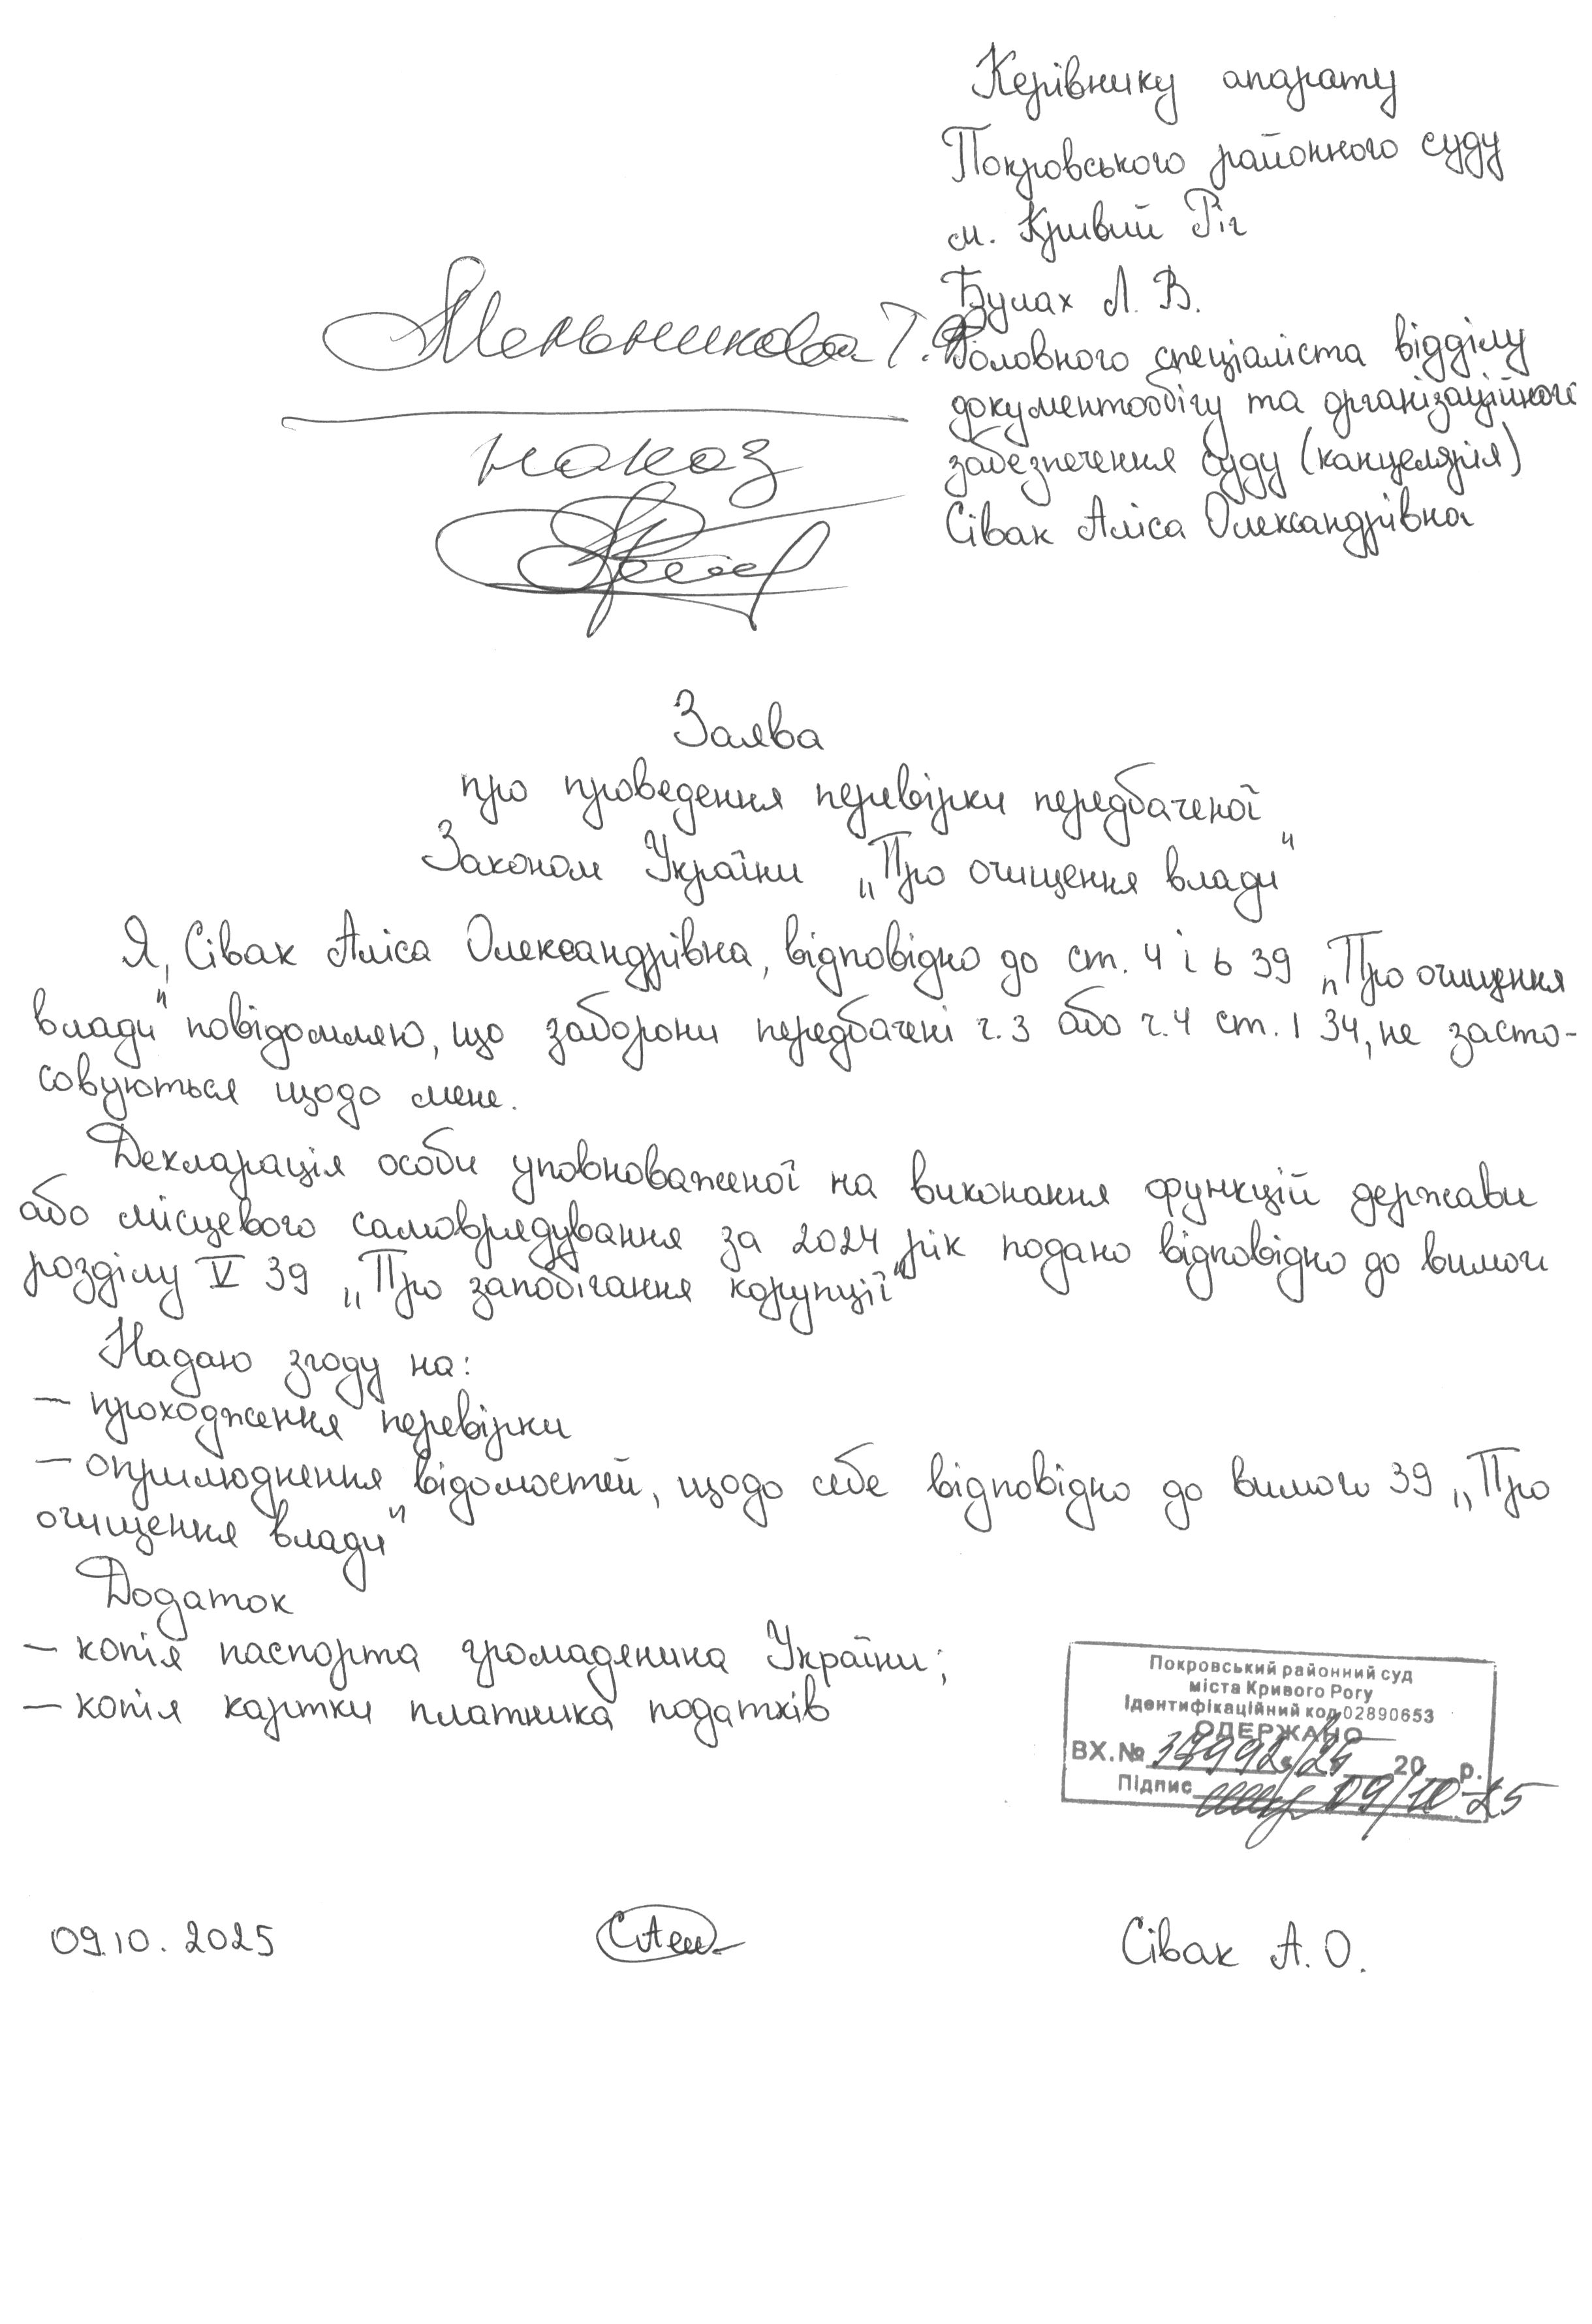 Керівнику апарату
Покровського районного суду
м. Кривий Ріг
Булах Л. В.
Мельникова Т.
Головного спеціаліста відділу
документообігу та організаційного
забезпечення суду (канцелярія)
Сівак Аліса Олександрівна
наказ
Заява
про проведення перевірки передбаченої
Законом України „Про очищення влади"
Я, Сівак Аліса Олександрівна, відповідно до ст. 4 і 6 ЗУ „Про очищення
влади" повідомляю, що заборони передбачені ч.3 або ч.4 ст. 1 ЗУ, не засто-
совуються щодо мене.
Декларація особи уповноваженої на виконання функцій держави
або місцевого самоврядування за 2024 рік подано відповідно до вимог
розділу V ЗУ „Про запобігання корупції"
Надаю згоду на:
– проходження перевірки
– оприлюднення відомостей, щодо себе відповідно до вимого ЗУ „Про
очищення влади"
Додаток
– копія паспорта громадянина України;
– копія картки платника податків
Покровський районний суд
міста Кривого Рогу
Ідентифікаційний код 02890653
ОДЕРЖАНО
ВХ.№ 37992/25 20 р.
Підпис 09/10 25
09.10.2025
Сівак А. О.